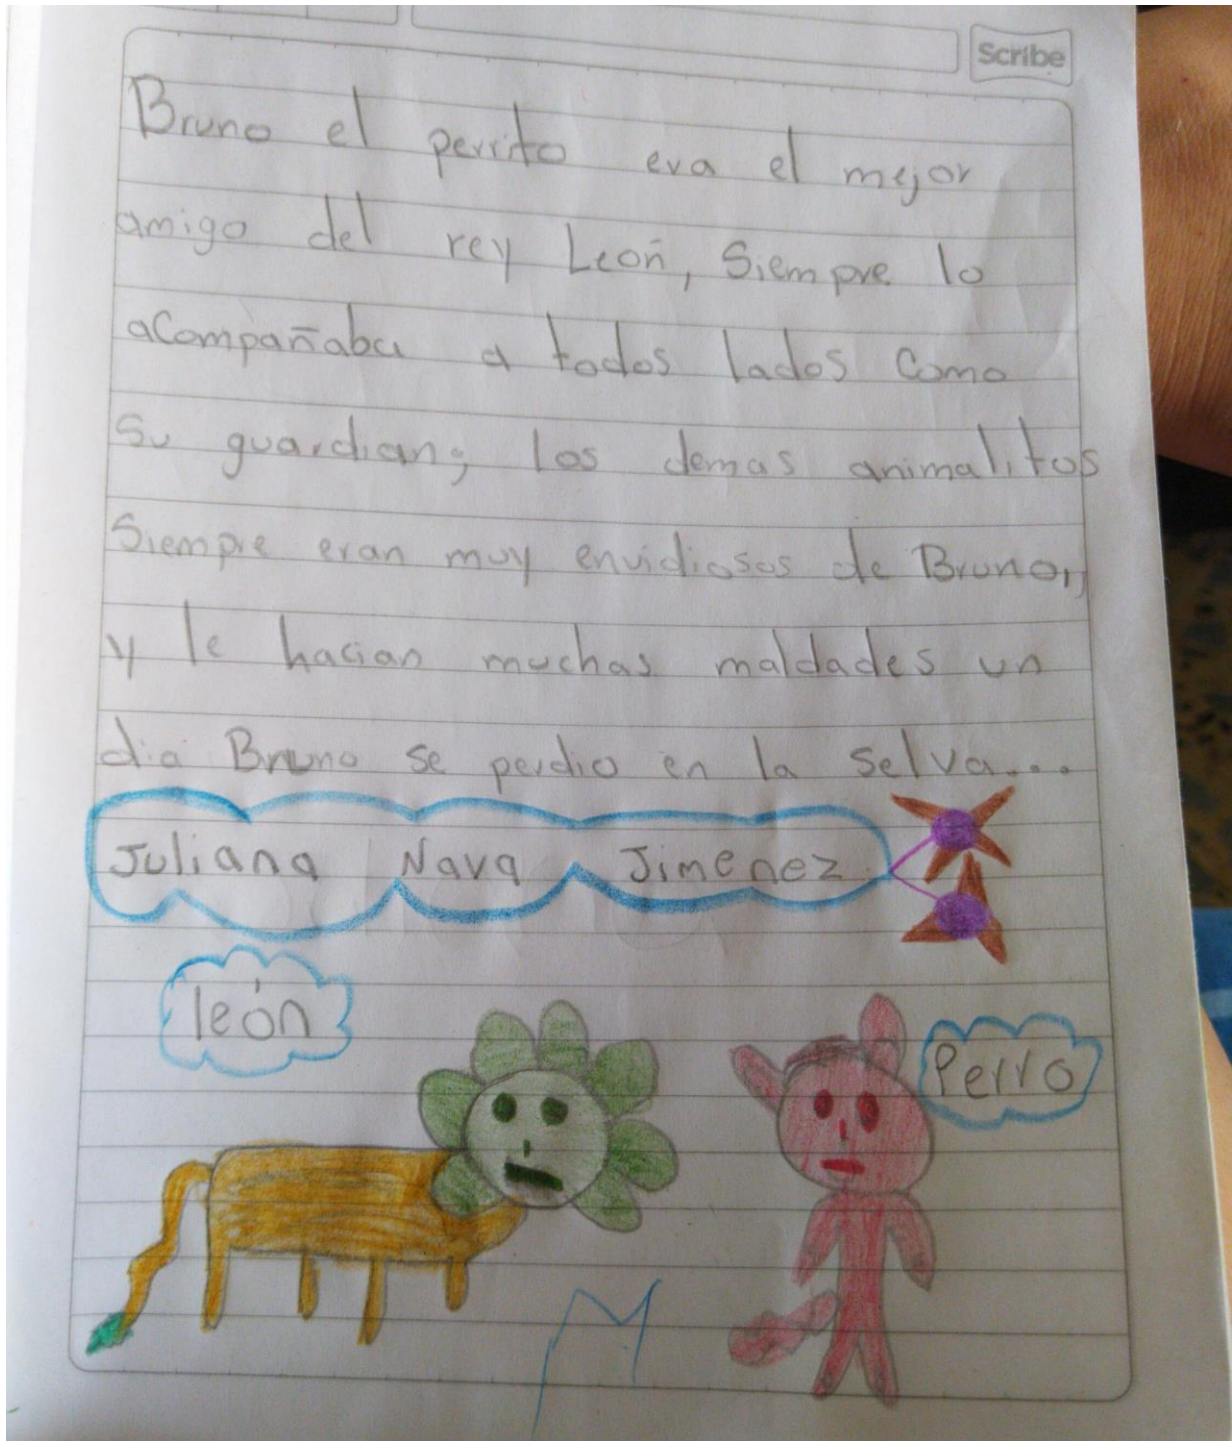 Scribe
Bruno el perrito era el mejor
amigo del rey León, Siempre lo
acompañaba a todos lados como
su guardian; los demas animalitos
Siempre eran muy envidiosos de Bruno,
y le hacian muchas maldades un
dia Bruno se perdio en la selva...
Juliana Nava Jimenez
león
Perro
M